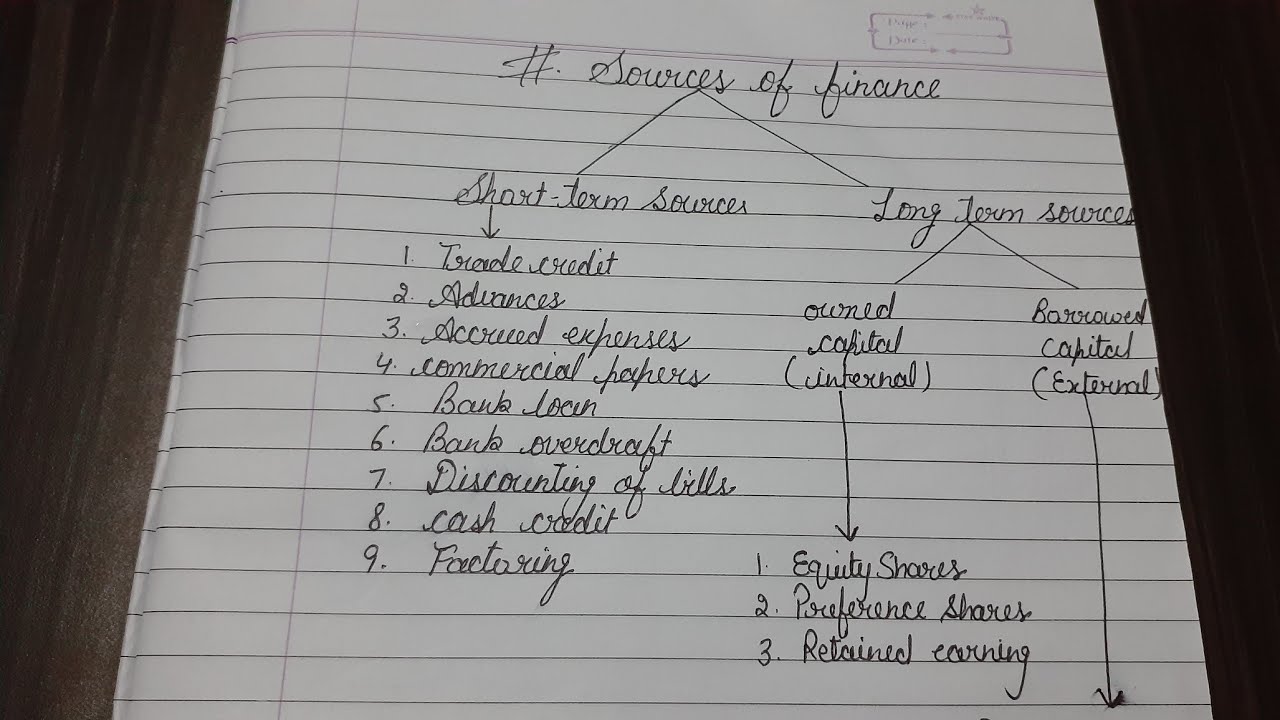 Page:
Date:
#. Sources of finance
Short-term sources
1. Trade credit
2. Advances
3. Accrued expenses
4. commercial papers
5. Bank loan
6. Bank overdraft
7. Discounting of bills
8. cash credit
9. Factoring
Long term sources
owned
capital
(internal)
1. Equity Shares
2. Preference shares
3. Retained earning
Borrowed
capital
(External)